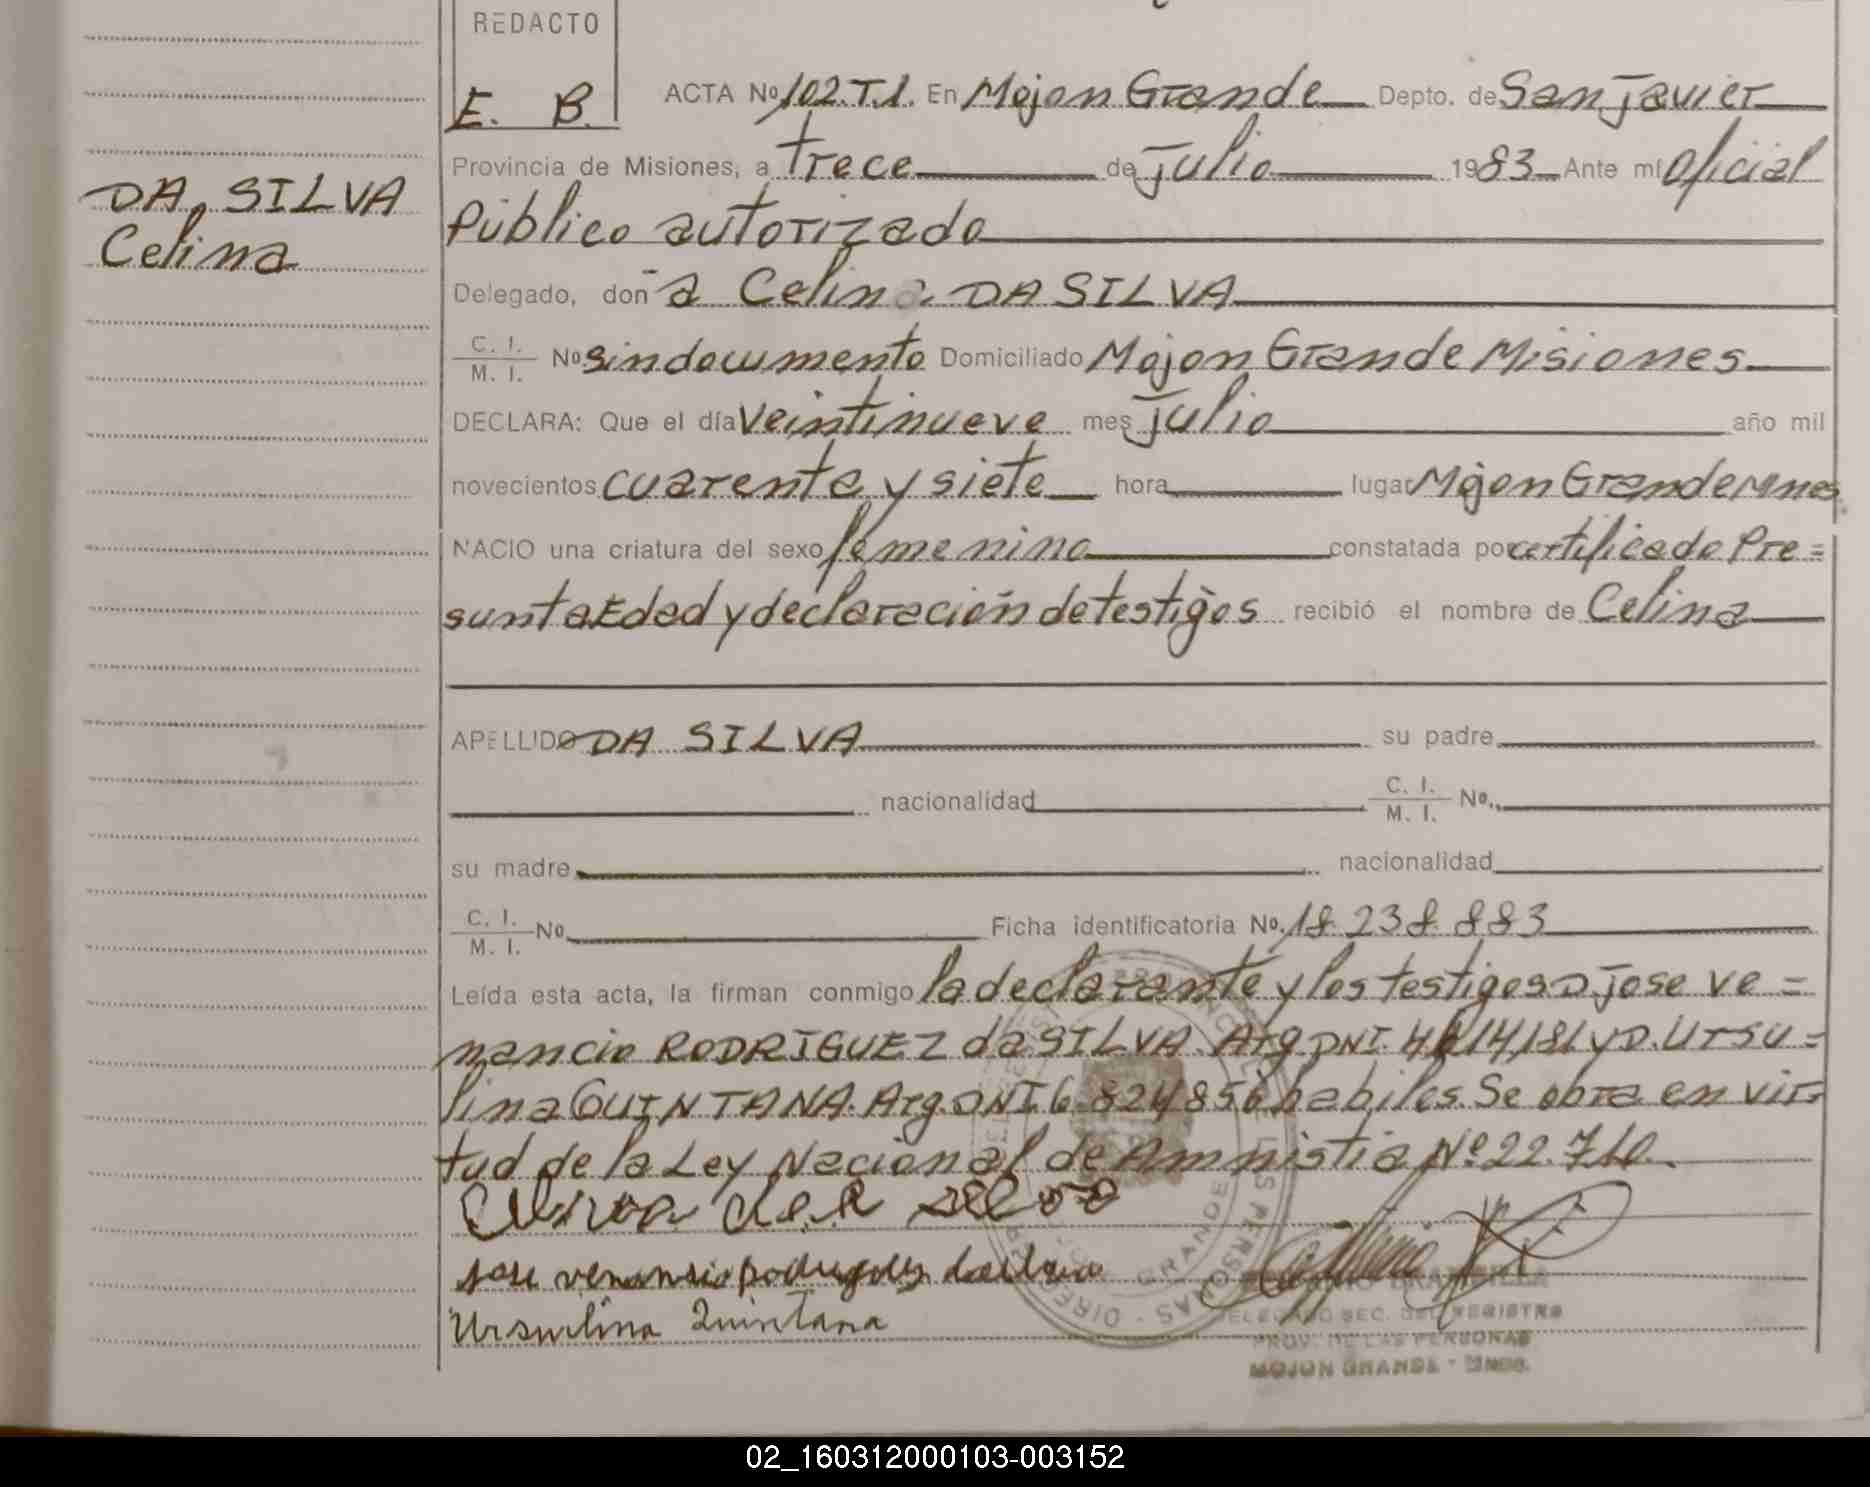 REDACTO
E. B.
DA SILVA
Celina
ACTA No 102.T.1. En Mojon Grande Depto. de San Javier
Provincia de Misiones, a trece de julio 1983 Ante mí oficial
Público autorizado
Delegado, doña Celina DA SILVA
C. I. / M. I. No sin documento Domiciliado Mojon Grande Misiones
DECLARA: Que el día veintinueve mes julio año mil
novecientos cuarenta y siete hora lugar Mojon Grande Mnes
NACIO una criatura del sexo femenino constatada por certificado Pre=
sunta Edad y declaración de testigos recibió el nombre de Celina
APELLIDO DA SILVA su padre
nacionalidad C. I. / M. I. No.
su madre nacionalidad
C. I. / M. I. No Ficha identificatoria No. 18.238.883
Leída esta acta, la firman conmigo la declarante y los testigos D jose ve=
nancio RODRIGUEZ da SILVA. Arg DNI. y D. Ursu=
lina QUINTANA. Arg. DNI. 6.824856 habiles. Se obra en vir=
tud de la Ley Nacional de Amnistia Nº 22.710.
jose venansio da
Ursulina Quintana
DELEGADO SEC. DEL REGISTRO
PROV. DE LAS PERSONAS
MOJON GRANDE - MNES.
02_160312000103-003152